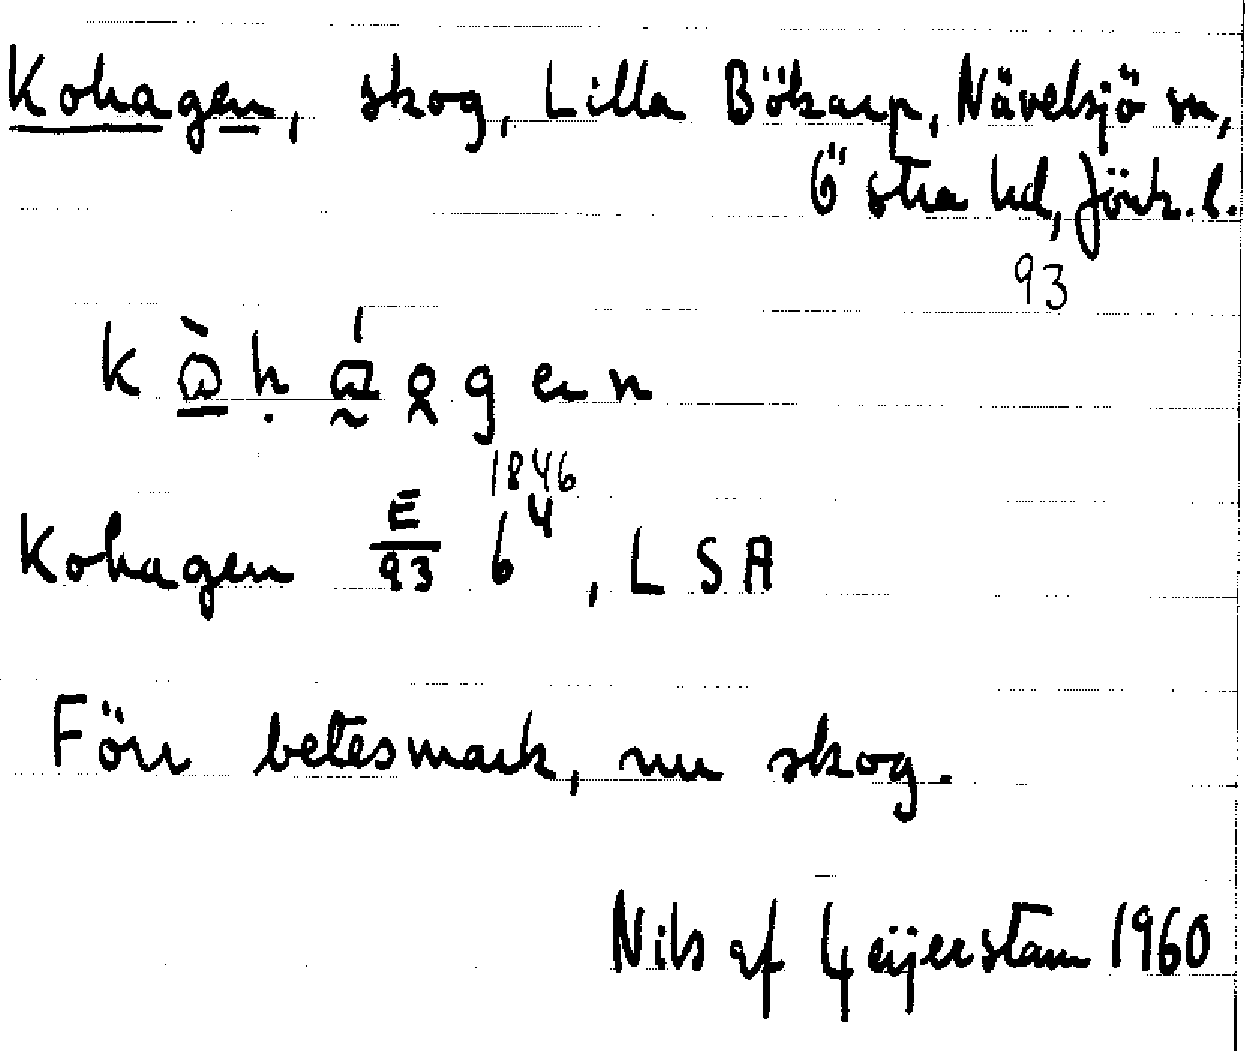 Kohagen, skog, Lilla Bökarp, Nävelsjö sn,
Östra hd, Jönk. l.
93
Kohagen E/93 6⁴ 1846, LSA
Förr betesmark, nu skog.
Nils af Geijerstam 1960